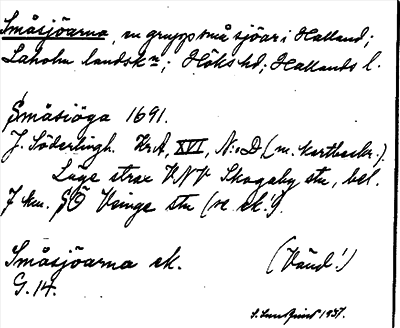 Småsjöarna, en grupp små sjöar i Halland;
Laholm landsk:n; Höks hd; Hallands l.
Småsiöga 1691.
J. Söderlingh. KrA, XVI, N:o D, (m. kartbeskr.).
Läge strax VNV Skogaby stn, bel.
7 km. SÖ Veinge stn (se ek!).
Småsjöarna ek. (Vänd!)
G. 14.
S. Lundqvist 1937.